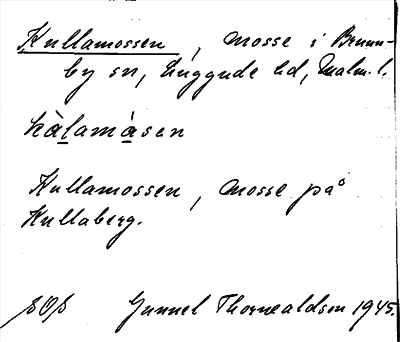 Kullamossen, mosse i Brunn-
by sn, Luggude hd, Malm. l.
kàlamàsen
Kullamossen, mosse på
Kullaberg.
SOS Gunnel Thornealdson 1945.